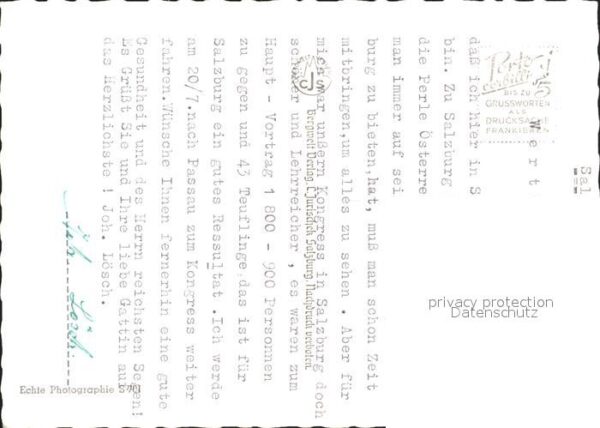 Sal
Wert
daß ich hier in S
bin. Zu Salzburg
die Perle Österre
man immer auf sei
burg zu bieten,hat, muß man schon Zeit
mitbringen,um alles zu sehen . Aber für
mich war unßern Kongress in Salzburg doch
schöner und Lehrreicher , es waren zum
Haupt - Vortrag 1 800 - 900 Personnen
zu gegen und 43 Teuflinge,das ist für
Salzburg ein gutes Ressultat .Ich werde
am 20/7.nach Passau zum Kongress weiter
fahren.Wünsche Ihnen fernerhin eine gute
Gesundheit und des Herrn reichsten Segen!
Es Grüßt Sie und Ihre liebe Gattin auf
das Herzlichste ! Joh. Lösch.
Joh. Lösch.
Porto
BIS ZU
GRUSSWORTEN
ALS
DRUCKSACHE
FRANKIEREN
CJS
Bergwelt Verlag C. Jurischek Salzburg, Nachdruck verboten.
privacy protection
Datenschutz
Echte Photographie S 701